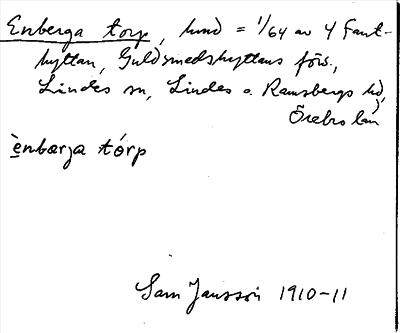 Enberga torp, lund = 1/64 av 4 Fant-
hyttan, Guldsmedshyttans förs.,
Lindes sn, Lindes o. Ramsbergs hd,
Örebro län
ènbærga tórp
Sam Jansson 1910-11